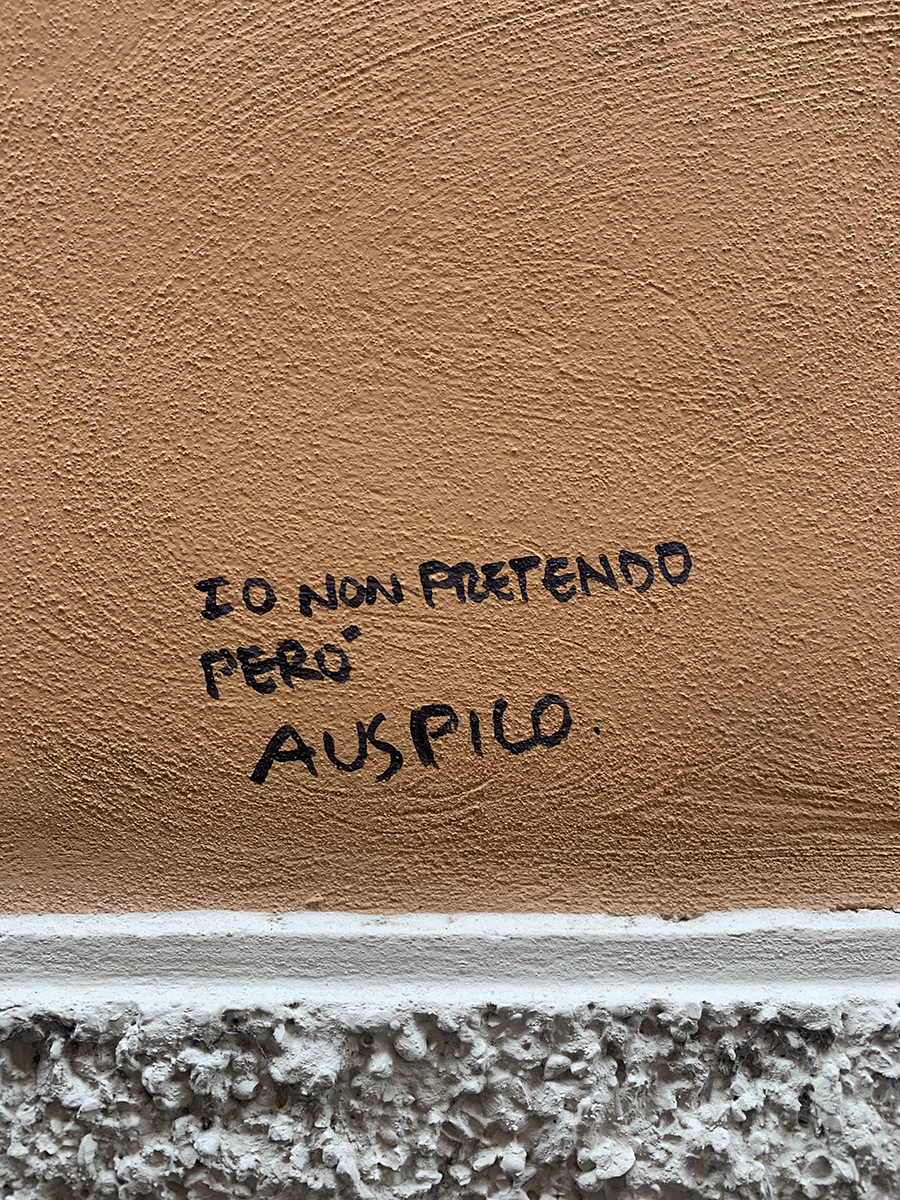 IO NON PRETENDO
PERÓ
AUSPICO.